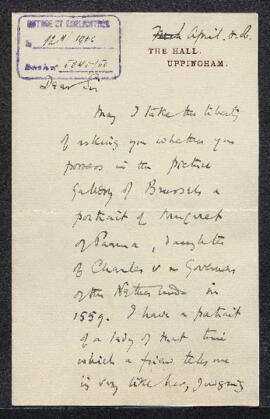 April
THE HALL.
UPPINGHAM.
Dear Sir
May I take the liberty
of asking you whether you
possess in the picture
Gallery of Brussels a
portrait of Margaret
of Parma, daughter
of Charles V
of the Netherlands in
1559. I have a portrait
of a lady of that time
which a friend tells me
is very like her, judging